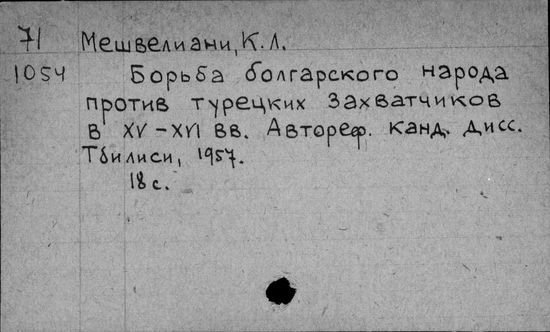 71 Мешвелиани, К.Л.
1054 Борьба болгарского народа
против турецких захватчиков
в XV-XVI вв. Автореф. канд. дисс.
Тбилиси, 1957.
18 с.